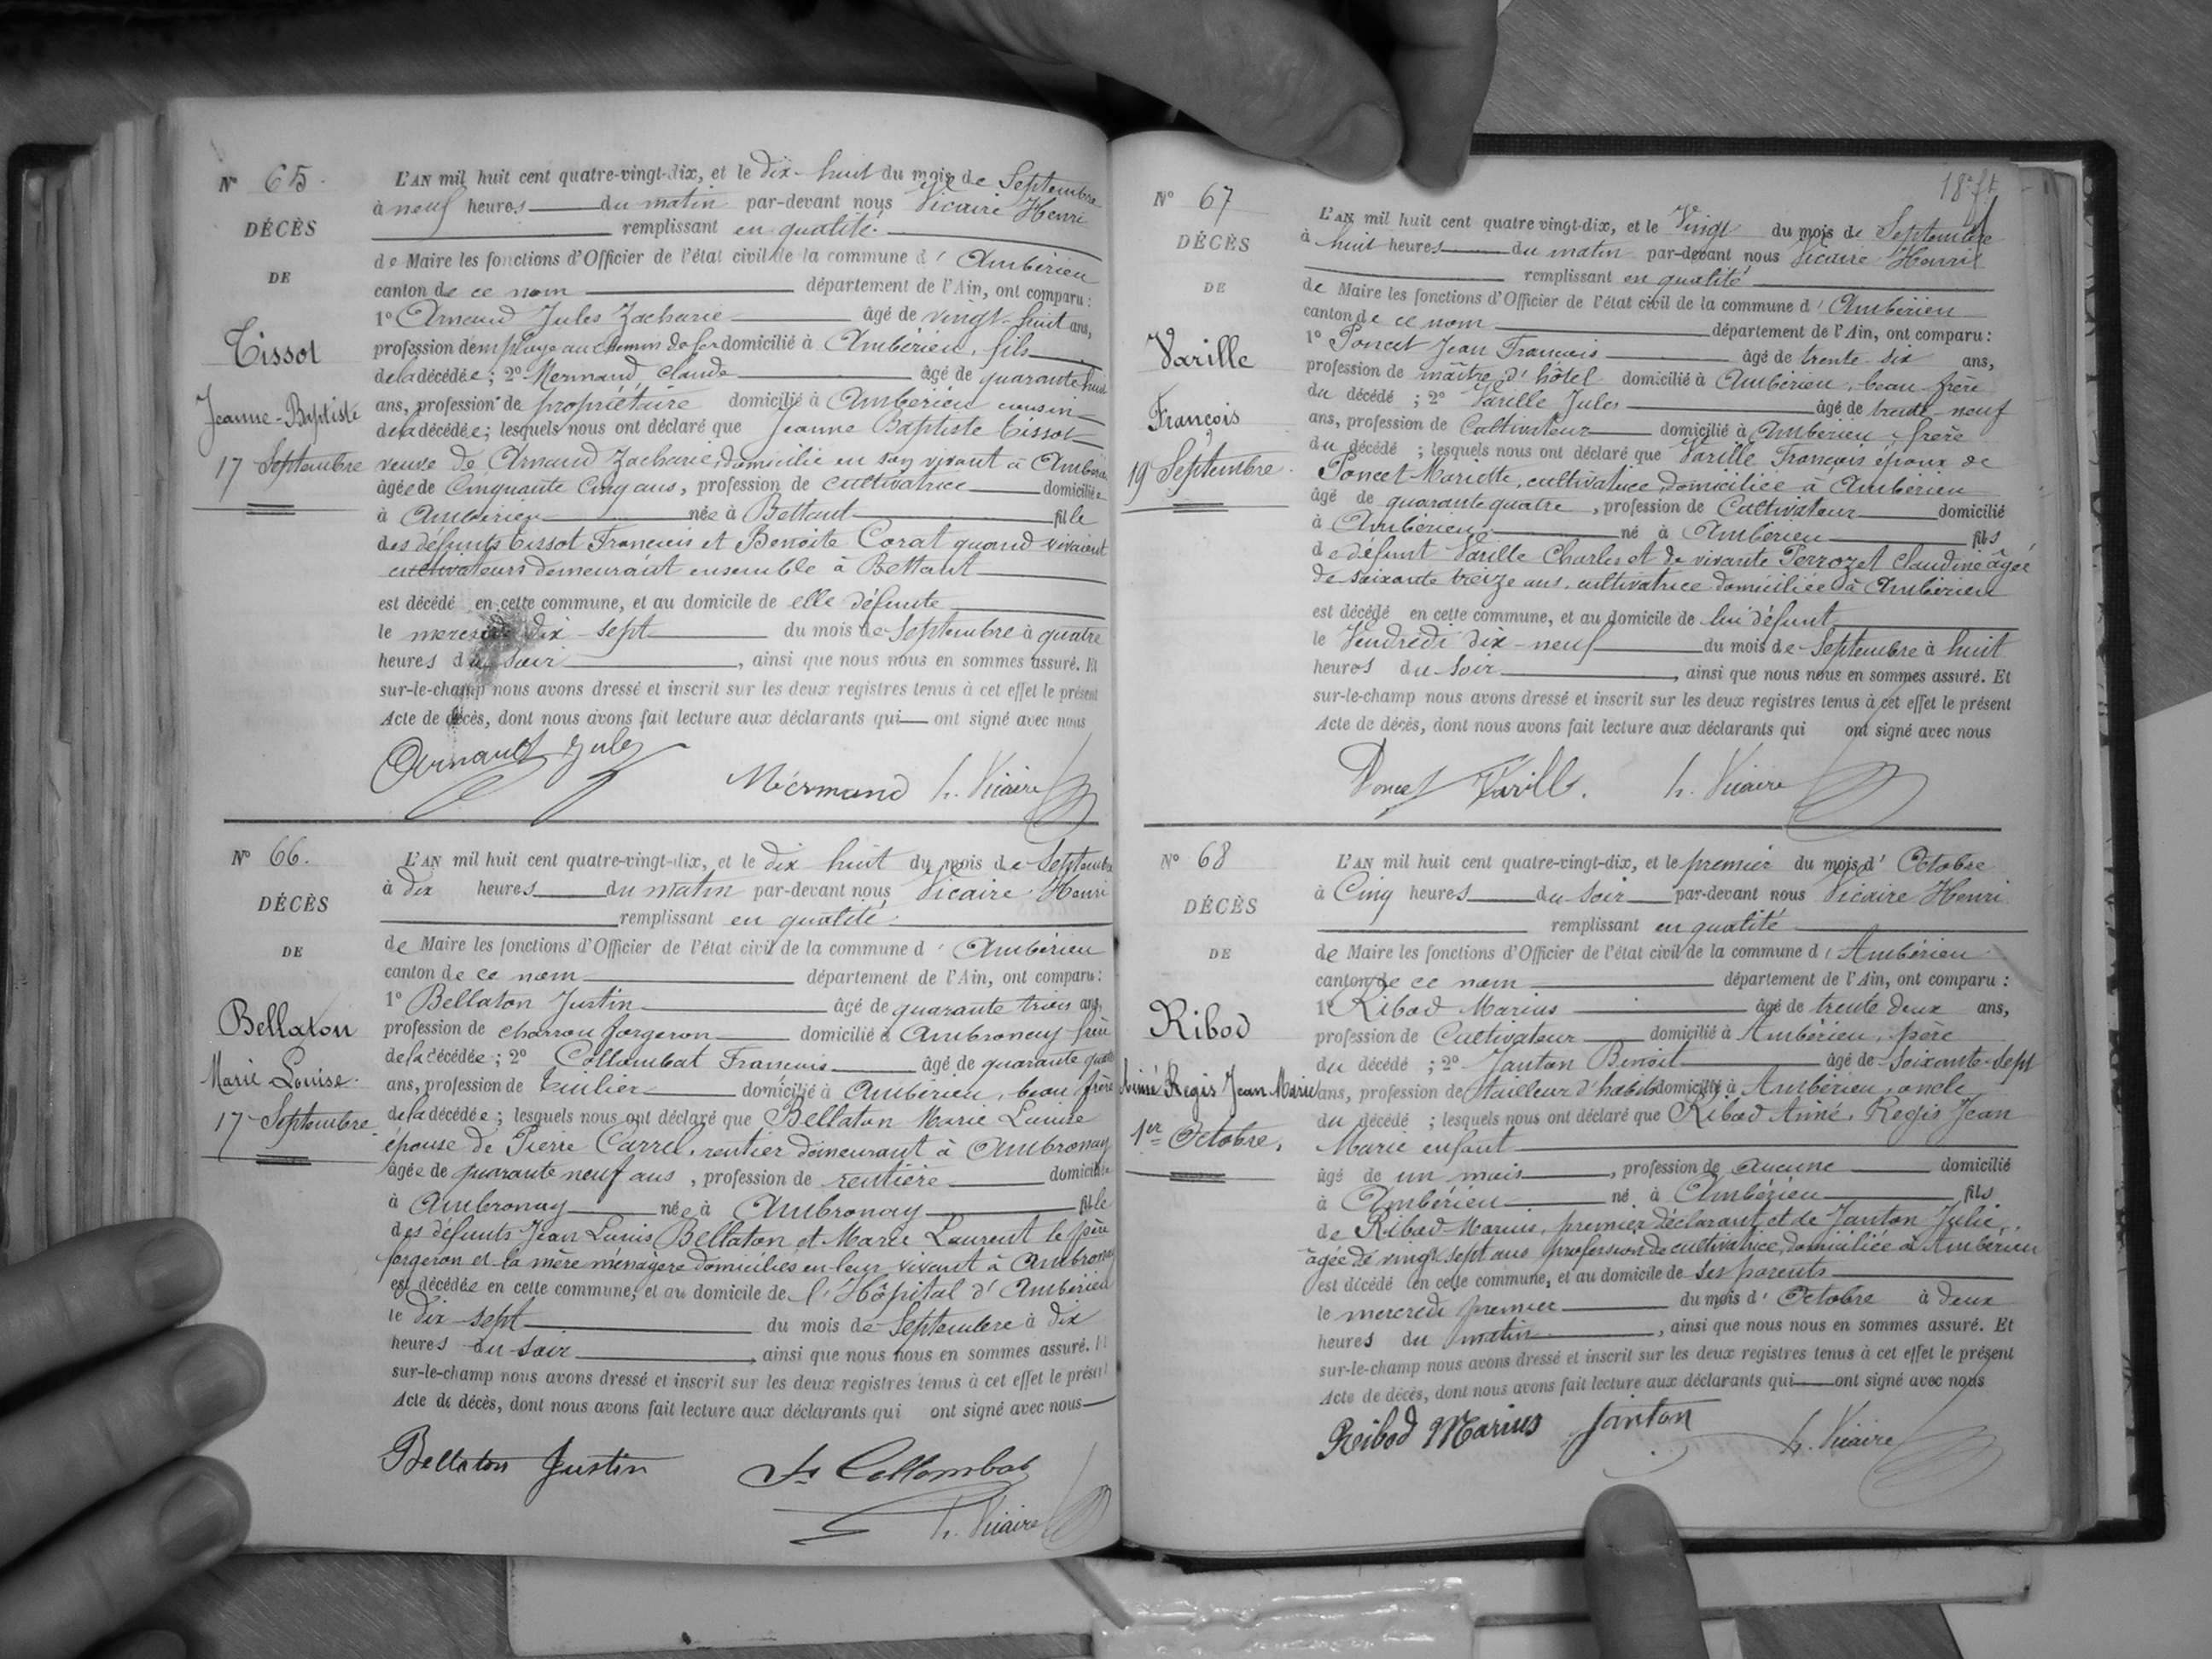 N° 65.
DÉCÈS
DE
Tissot
Jeanne-Baptiste
17 Septembre
L'AN mil huit cent quatre-vingt-dix, et le dix-huit du mois de Septembre
à neuf heures du matin par-devant nous Vicaire Henri
remplissant en qualité
de Maire les fonctions d'Officier de l'état civil de la commune d'Ambérieu
canton de ce nom département de l'Ain, ont comparu :
1° Arnaud Jules Zacharie âgé de vingt-huit ans,
profession d'employé au chemin de fer domicilié à Ambérieu, fils
de la décédée ; 2° Mermand Claude âgé de quarante huit
ans, profession de propriétaire domicilié à Ambérieu cousin
de la décédée ; lesquels nous ont déclaré que Jeanne Baptiste Tissot
veuve de Arnaud Zacharie, domicilié en son vivant à Ambérieu
âgée de Cinquante Cinq ans, profession de cultivatrice domiciliée
à Ambérieu née à Bettant fille
des défunts Tissot François et Benoite Corat quand vivaient
cultivateurs demeurant ensemble à Bettant
est décédé en cette commune, et au domicile de elle défunte
le mercredi dix-sept du mois de Septembre à quatre
heures du soir, ainsi que nous nous en sommes assuré. Et
sur-le-champ nous avons dressé et inscrit sur les deux registres tenus à cet effet le présent
Acte de décès, dont nous avons fait lecture aux déclarants qui ont signé avec nous
Arnaud Jules Mermand h. Vicaire
N° 66.
DÉCÈS
DE
Bellaton
Marie Louise.
17 Septembre
L'AN mil huit cent quatre-vingt-dix, et le dix huit du mois de Septembre
à dix heures du matin par-devant nous Vicaire Henri
remplissant en qualité
de Maire les fonctions d'Officier de l'état civil de la commune d'Ambérieu
canton de ce nom département de l'Ain, ont comparu :
1° Bellaton Justin âgé de quarante trois ans,
profession de charron forgeron domicilié à Ambronay frère
de la décédée ; 2° Collombat François âgé de quarante quatre
ans, profession de tuilier domicilié à Ambérieu, beau frère
de la décédée ; lesquels nous ont déclaré que Bellaton Marie Louise
épouse de Pierre Carrel, rentier demeurant à Ambronay
âgée de quarante neuf ans, profession de rentière domiciliée
à Ambronay née à Ambronay fille
des défunts Jean Louis Bellaton et Marie Laurent le père
forgeron et la mère ménagère domiciliés en leur vivant à Ambronay
est décédée en cette commune, et au domicile de l'Hôpital d'Ambérieu
le dix-sept du mois de Septembre à dix
heures du soir, ainsi que nous nous en sommes assuré. Et
sur-le-champ nous avons dressé et inscrit sur les deux registres tenus à cet effet le présent
Acte de décès, dont nous avons fait lecture aux déclarants qui ont signé avec nous
Bellaton Justin Fs Collombat
h. Vicaire
N° 67
DÉCÈS
DE
Varille
François
19 Septembre.
L'AN mil huit cent quatre vingt-dix, et le Vingt du mois de Septembre
à huit heures du matin par-devant nous Vicaire Henri
remplissant en qualité
de Maire les fonctions d'Officier de l'état civil de la commune d'Ambérieu
canton de ce nom département de l'Ain, ont comparu :
1° Poncet Jean François âgé de trente-six ans,
profession de maître d'hôtel domicilié à Ambérieu, beau-frère
du décédé ; 2° Varille Jules âgé de trente-neuf
ans, profession de Cultivateur domicilié à Ambérieu, frère
du décédé ; lesquels nous ont déclaré que Varille François époux de
Poncet Mariette, cultivatrice domiciliée à Ambérieu
âgé de quarante quatre, profession de Cultivateur domicilié
à Ambérieu né à Ambérieu fils
de défunt Varille Charles et de vivante Perrozet Claudine âgée
de soixante treize ans, cultivatrice domiciliée à Ambérieu
est décédé en cette commune, et au domicile de lui défunt
le Vendredi dix-neuf du mois de Septembre à huit
heures du soir, ainsi que nous nous en sommes assuré. Et
sur-le-champ nous avons dressé et inscrit sur les deux registres tenus à cet effet le présent
Acte de décès, dont nous avons fait lecture aux déclarants qui ont signé avec nous
Poncet Varille. h. Vicaire
N° 68
DÉCÈS
DE
Ribod
Aimé Regis Jean Marie
1er Octobre.
L'AN mil huit cent quatre-vingt-dix, et le premier du mois d'Octobre
à Cinq heures du soir par-devant nous Vicaire Henri
remplissant en qualité
de Maire les fonctions d'Officier de l'état civil de la commune d'Ambérieu
canton de ce nom département de l'Ain, ont comparu :
1° Ribod Marius âgé de trente deux ans,
profession de Cultivateur domicilié à Ambérieu, père
du décédé ; 2° Janton Benoit âgé de Soixante-Sept
ans, profession de tailleur d'habits domicilié à Ambérieu, oncle
du décédé ; lesquels nous ont déclaré que Ribod Aimé, Regis Jean
Marie enfant
âgé de un mois, profession de aucune domicilié
à Ambérieu né à Ambérieu fils
de Ribod Marius, premier déclarant et de Janton Julie,
âgée de vingt sept ans profession de cultivatrice, domiciliée à Ambérieu
est décédé en cette commune, et au domicile de ses parents
le mercredi premier du mois d'Octobre à deux
heures du matin, ainsi que nous nous en sommes assuré. Et
sur-le-champ nous avons dressé et inscrit sur les deux registres tenus à cet effet le présent
Acte de décès, dont nous avons fait lecture aux déclarants qui ont signé avec nous
Ribod Marius Janton h. Vicaire